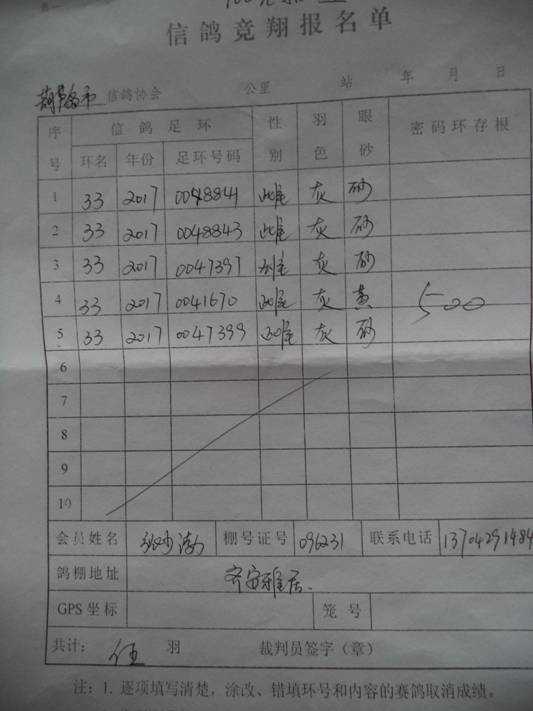 信鸽竞翔报名单
葫芦岛市 信鸽协会 公里 站 年 月 日
序号 信鸽足环 性别 羽色 眼砂 密码环存根
环名 年份 足环号码
1 33 2017 0048841 雌 灰 砂
2 33 2017 0048843 雌 灰 砂
3 33 2017 0047397 灰 砂
4 33 2017 0041670 雌 灰 黄 500
5 33 2017 0047399 雌 灰 砂
6
7
8
9
10
会员姓名 棚号证号 096231 联系电话 13704291484
鸽棚地址 齐安雅居.
GPS坐标 笼号
共计: 伍 羽 裁判员签字(章)
注:1. 逐项填写清楚,涂改、错填环号和内容的赛鸽取消成绩。